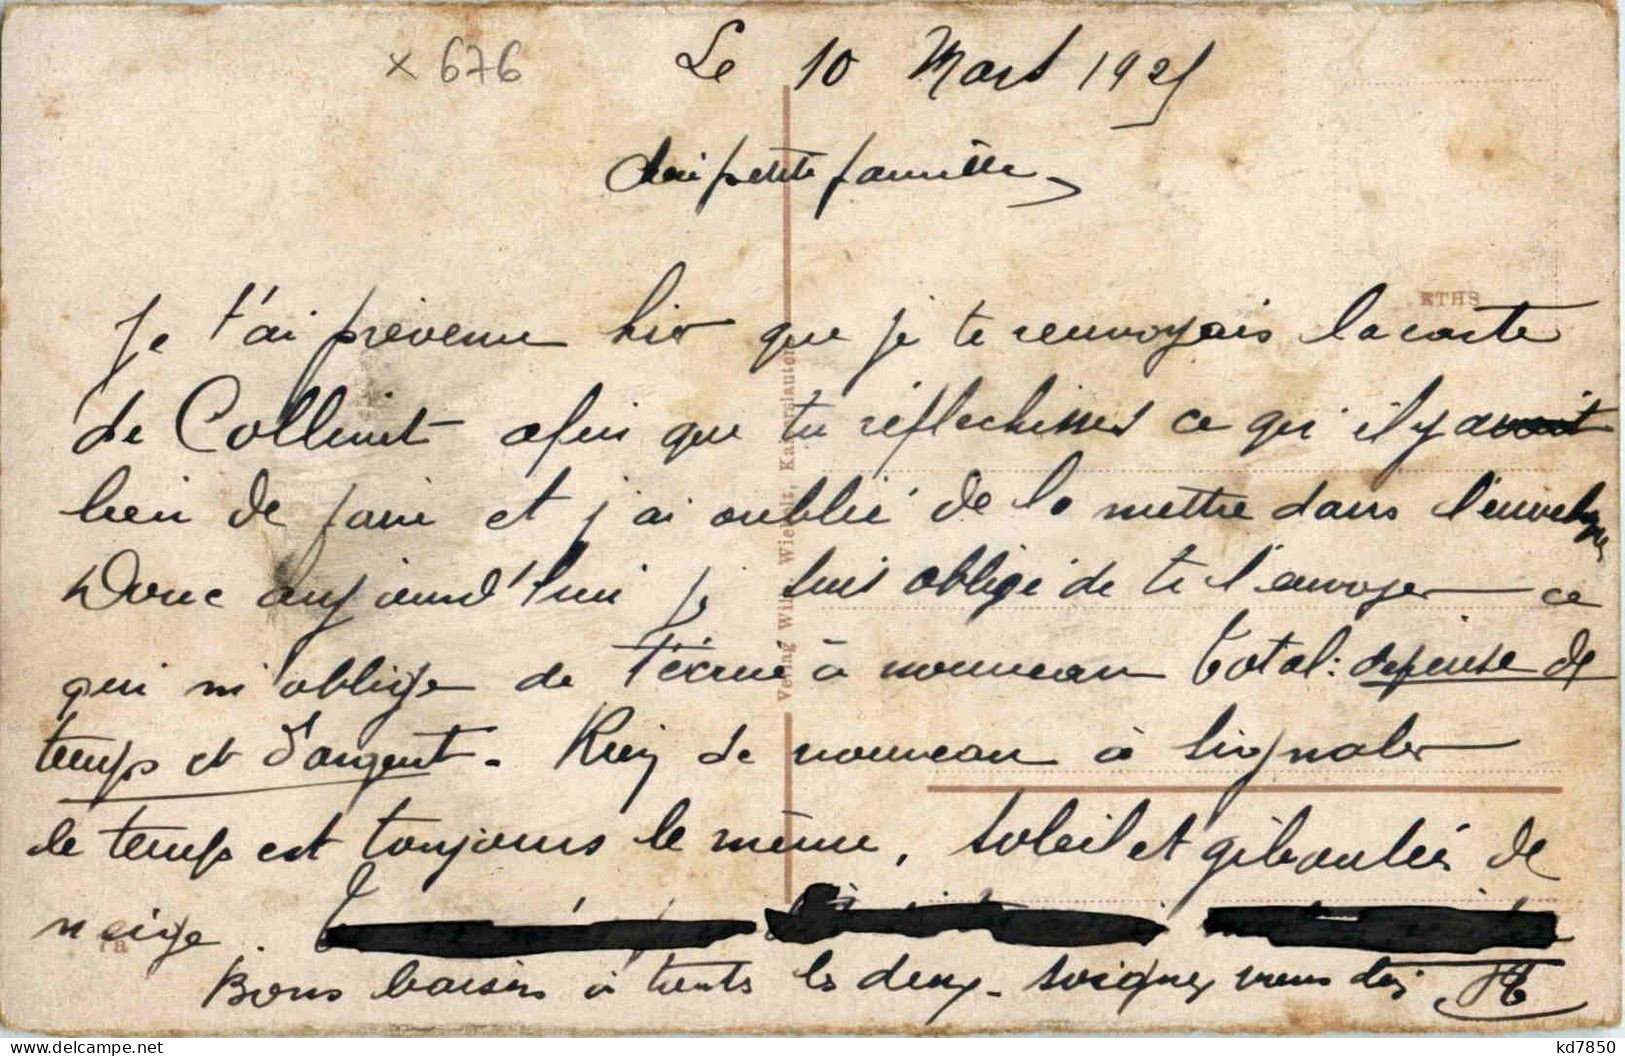 x 676
Le 10 Mars 1925
Chère petite famille,
Je t'ai prévenue hier que je te renvoyais la carte
de Collinet afin que tu réflechisses ce qu'il y avait
lieu de faire et j'ai oublié de la mettre dans l'enveloppe
Donc aujourd'hui je suis obligé de te l'envoyer ce
qui m'oblige de t'écrire à nouveau total : dépense de
temps et d'argent. Rien de nouveau à signaler
le temps est toujours le même, soleil et giboulées de
neige.
Bons baisers à toutes les deux. Soignez vous bien
Verlag Wilh. Kaiserslautern